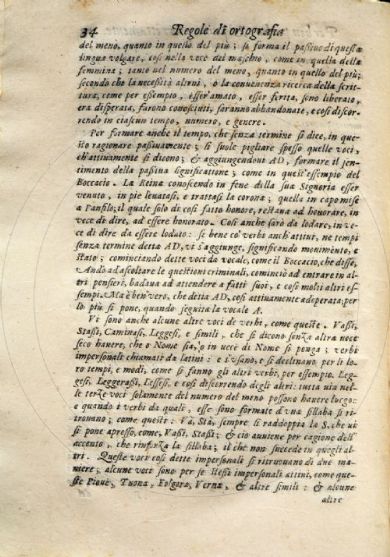 34 Regole di ortografia
del meno, quanto in quello del più; si forma il passivo di questa
lingua volgare, così nella voce del maschio, come in quella della
femmina; tanto nel numero del meno, quanto in quello del più;
secondo che la necessità altrui, o la convenienza ricerca della scrit-
tura; come per esempio, esser'amato, esser ferita, sono liberati,
era disperata, furono conosciuti, saranno abbandonate, e così discor-
rendo in ciascun tempo, numero, e genere.
Per formare anche il tempo, che senza termine si dice, in que-
sto ragionare passiuamente; si suole pigliare spesso quelle voci,
ch'attiuamente si dicono; & aggiungendoui AD, formare il sen-
timento della passiua significatione; come in quest'essempio del
Boccacio. La Reina conoscendo in fine della sua Signoria esser
venuto, in piè leuatasi, e trattasi la corona; quella in capo mise
a Panfilo; il quale solo di così fatto honore, restaua ad honorare, in
vece di dire, ad essere honorato. Così anche sarà da lodare, in ve-
ce di dire da essere lodato: se bene co' verbi anch'attiui, ne' tempi
senza termine detta AD, vi s'aggiunge, significando mouimento, e
stato; cominciando dette voci da vocale, come il Boccacio, che disse,
Andò ad ascoltare le questioni criminali, cominciò ad entrare in al-
tri pensieri, badaua ad attendere a fatti suoi, e così molti altri es-
sempi. Ma è ben vero, che detta AD, così attiuamente adoperata; per
lo più si pone, quando seguita la vocale A.
Vi sono anche alcune altre voci de' verbi, come queste. Vassi,
Stassi, Caminasi, Leggesi, e simili, che si dicono senza altra
seco hauere, che o Nome sia, o in uece di Nome si ponga; verbi
impersonali chiamati da latini: e s'usano, e si declinano per li lo-
ro tempi, e modi, come si fanno gli altri verbi, per essempio. Leg-
gesi, Leggerassi, Lessesi, e così discorrendo degli altri: tutta uia nel-
le terze voci solamente del numero del meno possono hauere luogo:
e quando i verbi da quali, esse sono formate d'una sillaba si ri-
trouano; come questi: Và, Stà, sempre si raddoppia la S, che ui
si pone appresso, come, Vassi, Stassi; & ciò auuiene per cagione dell'
accento, che rinforza la sillaba; il che non succede in quegli al-
tri. Queste voci così dette impersonali si ritruouano di due ma-
niere; alcune voci sono per se stesse impersonali attiui, come que-
ste Pioue, Tuona, Folgora, Verna, & altre simili: & alcune
altre